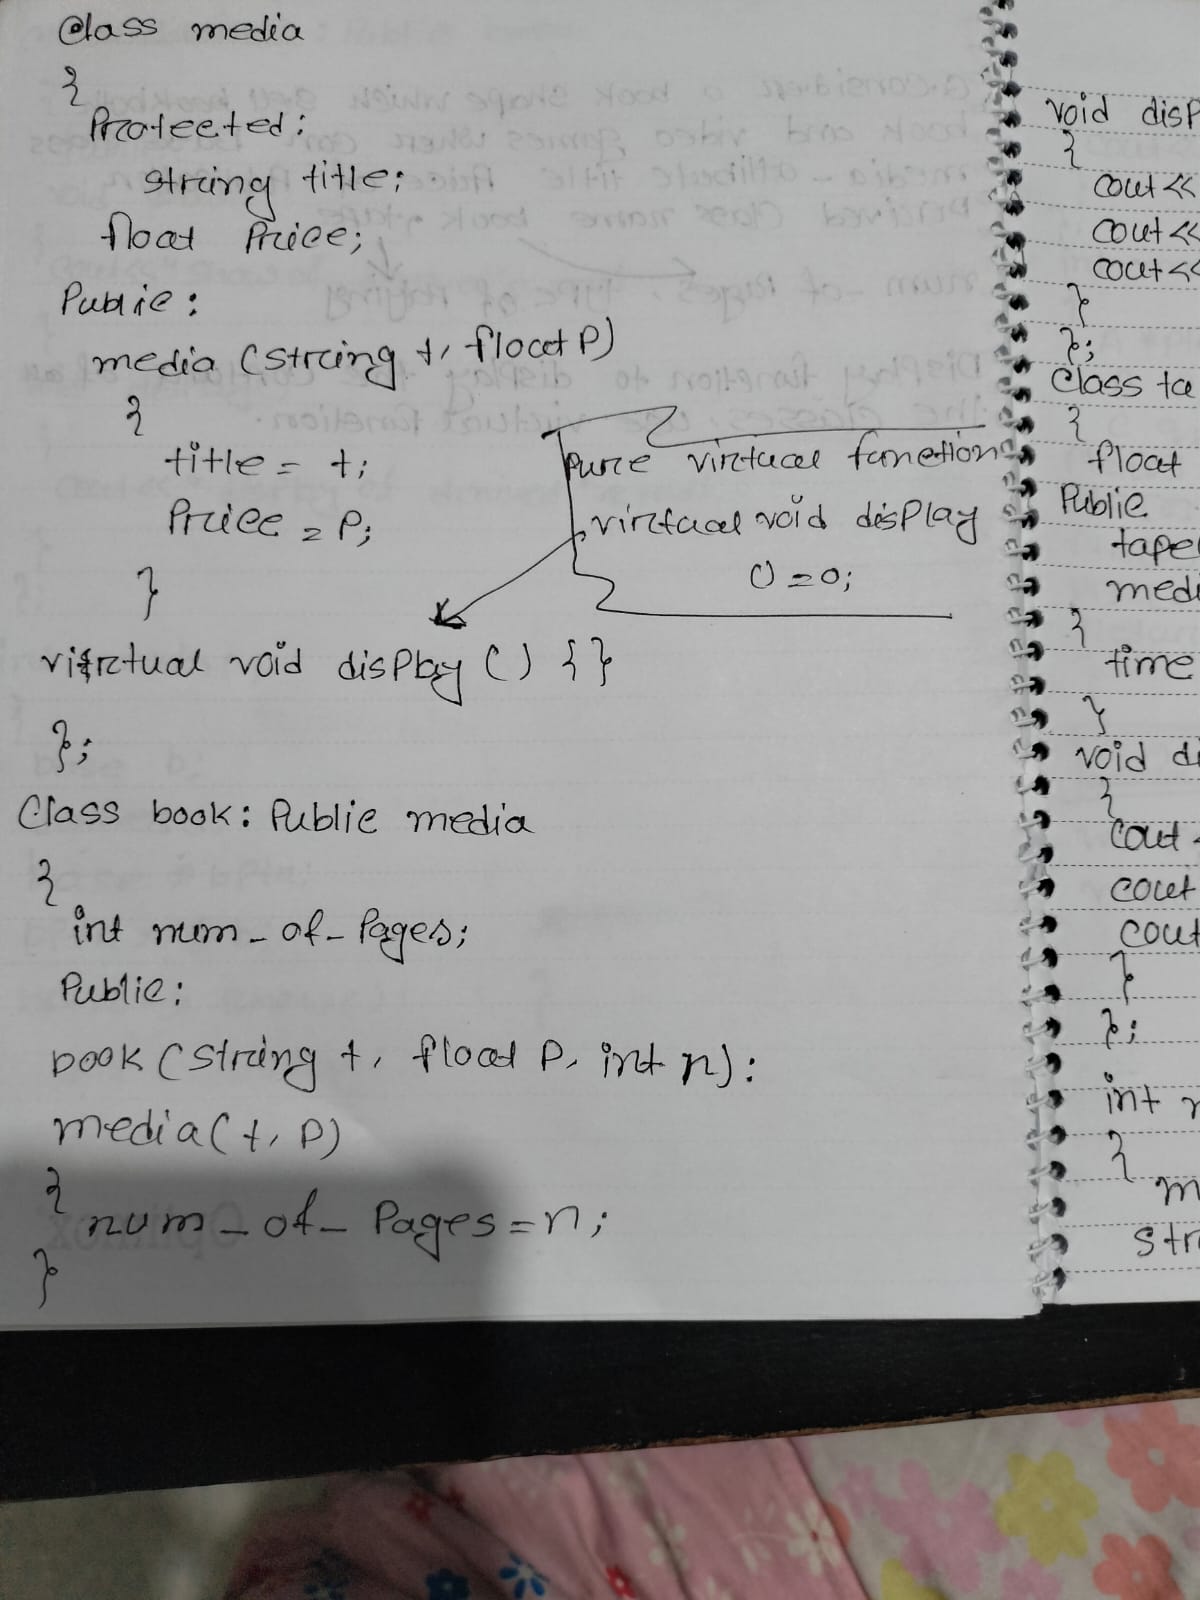 Class media
{
Protected:
string title;
float Price;
Public:
media (string t, float P)
{
title = t;
Price = P;
}
Pure virtual function
virtual void display
() = 0;
virtual void display () { }
};
Class book: Public media
{
int num_of_Pages;
Public:
book (string t, float P, int n):
media (t, P)
{
num_of_Pages = n;
}
void disp
{
cout <<
cout <<
cout <<
}
};
Class ta
{
float
Public
tape(
medi
{
time
}
void di
{
cout <
cout
cout
}
};
int m
{
m
str